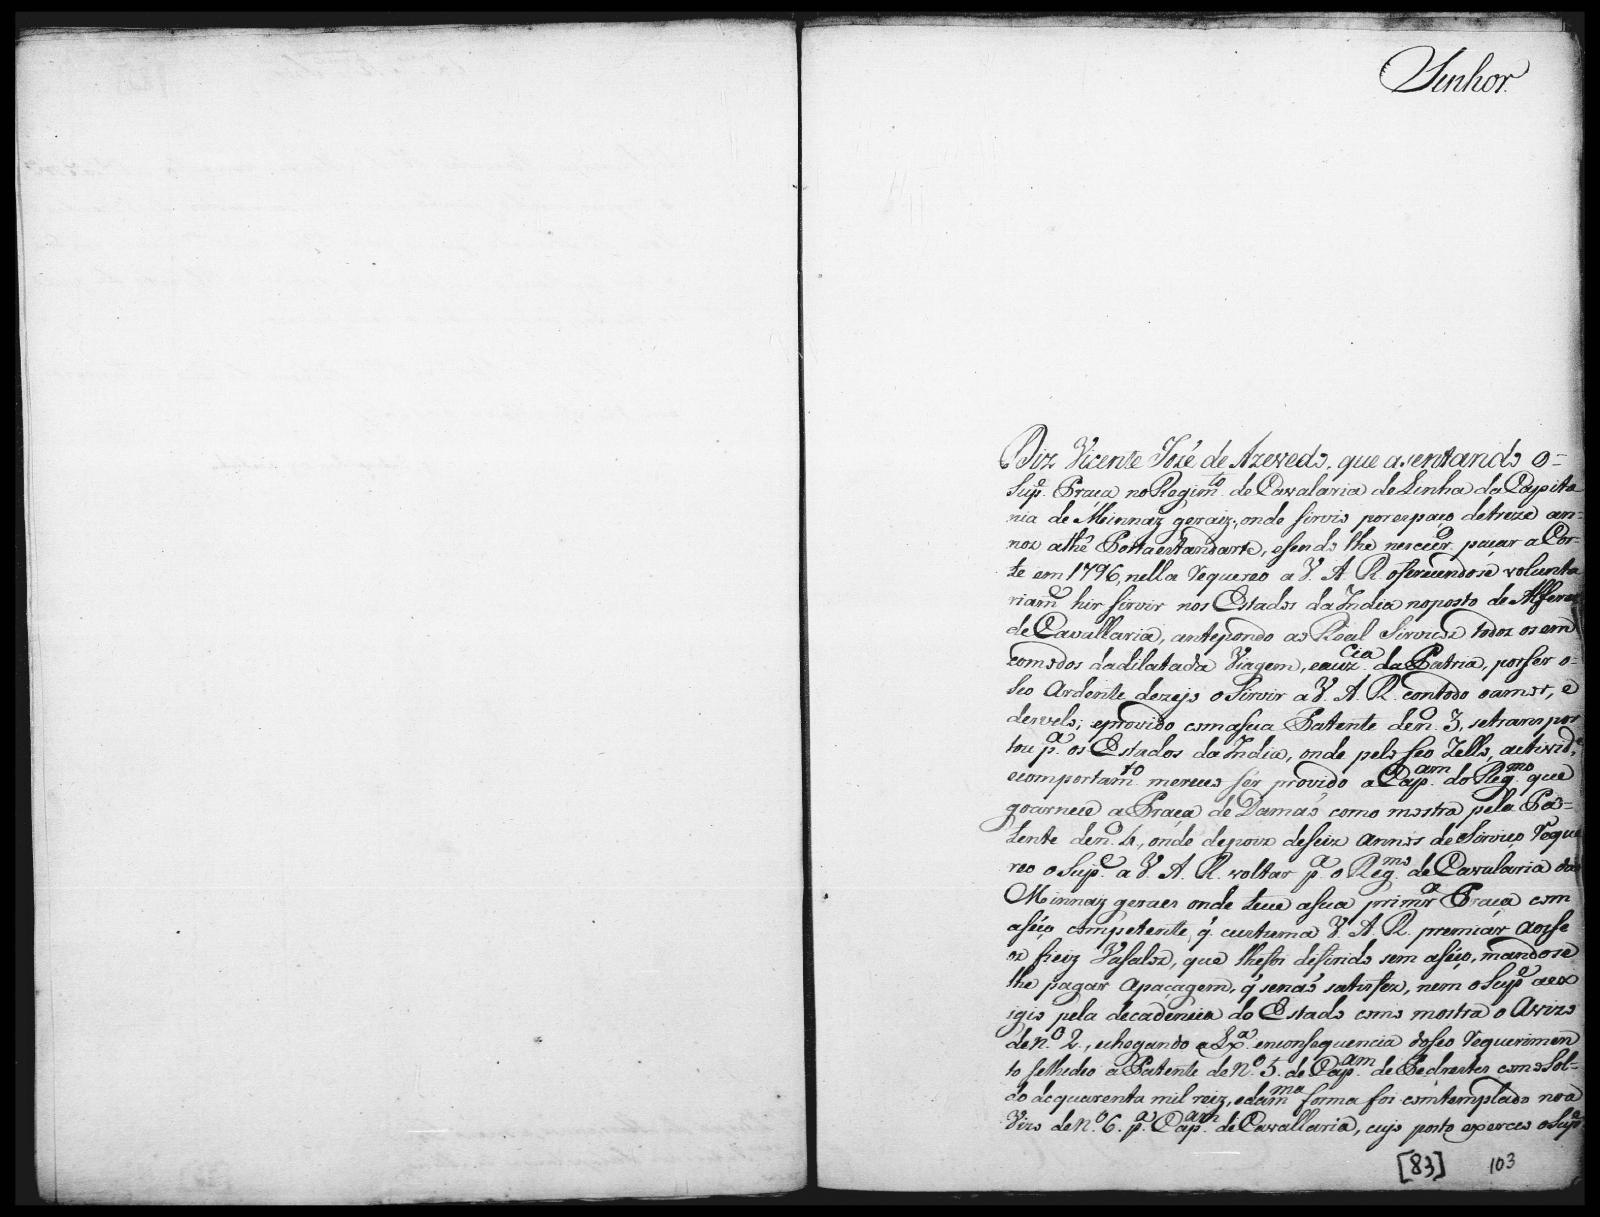 Senhor.
Diz Vicente Jozé de Azevedo, que asentando o=
Sup.e Praca no Regim.to de Cavalaria de Linha da Capita
nia de Minnaz geraiz, onde sirvio por espaço de treze an=
noz athé Portaestandarte, esendo lhe nerceçr.o paçar a Cor=
te em 1796, nella requereo a V. A. R. oferecendose volunta
riam.e hir sirvir nos Estados da India noposto de Alferez
de Cavallaria, antepondo ao Real Sirvico todoz os em
comodos dadilatada Viagem, eauz.cia da Patria, por ser o=
seo Ardente dezejo o Sirvir a V. A. R. comtodo oamor, e
dervelo; eprovido comasua Patente den.o 3, setranspor
tou p.a os Estados da India, onde pelo seo Zello, activid.e,
ecomportam.to mereceo sér provido a Cap.am do Reg.mo que
goarnece a Praça de Damaó como mostra pela Pa=
tente den.o 4, onde depoiz deseiz annos de Sirvico reque
reo o Sup.e a V. A. R. voltar p.a o Reg.mo de Cavalaria das
Minnaz geraes onde teve asua primr.a Praca com
aséço competente, q. custuma V. A. R. premiár aosse
oz fieiz Vasaloz, que lhefoi defirido sem aséço, mandose
lhe pagar apaçagem, q' senaó satisfez, nem o Sup.e aex
igio pela decadencia do Estado como mostra o Avizo
de N.o 2., echegando a Lx.a enconsequencia doseo requerimen
to selhedeo a Patente de N.o 5. de Cap.am de Pedrestes como Sol=
do de quarenta mil reiz, edam.ma forma foi comtemplado no a
Vizo de N.o 6. p.a Cap.am de Cavallaria, cujo posto exerceo o Sup.e
[83] 103